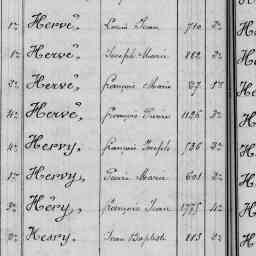 1re Hervé, Louis Jean 710 2e
1re Hervé, Joseph Marie 862 2e
2e Hervé, François Marie 27 1re
4e Hervé, François Pierre 1125 3e
4e Herry, François Joseph 736 3e
1re Hervy, Pierre Marie 601 2e
3e Héry, François Jean 1775 4e
2e Henry, Jean Baptiste 113 2e